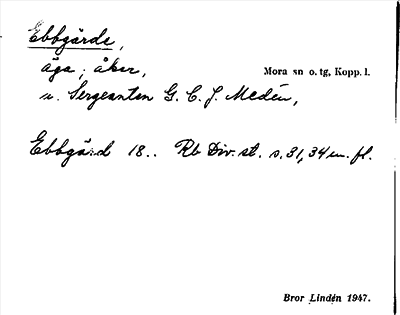 Ebbgärde,
äga; åker,
Mora sn o. tg, Kopp. l.
u. Sergeanten G. C. J. Medén,
Ebbgärd 18.. Rb Div. st. s. 31, 34 m. fl.
Bror Lindén 1947.